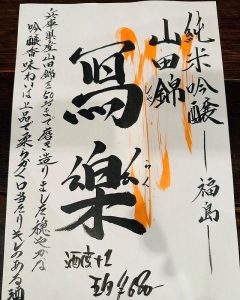 純米吟醸―福島―
山田錦
寫楽
しゃらく
酒度+1
兵庫県産山田錦を50%まで磨き造りました穏やかな
吟醸香味わいは上品で柔らかく口当たりキレのある酒